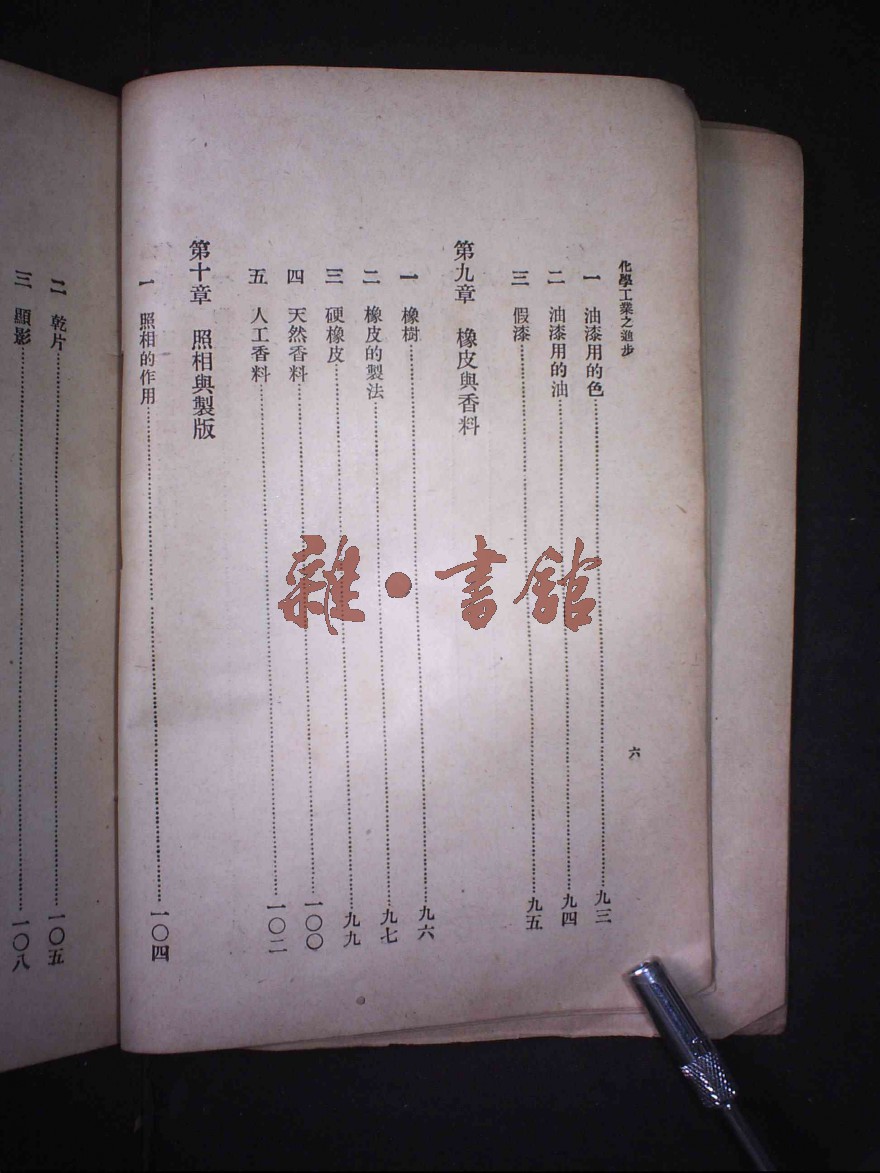 化學工業之進步
六
一 油漆用的色……九三
二 油漆用的油……九四
三 假漆……九五
第九章 橡皮與香料
一 橡樹……九六
二 橡皮的製法……九七
三 硬橡皮……九九
四 天然香料……一〇〇
五 人工香料……一〇二
第十章 照相與製版
一 照相的作用……一〇四
二 乾片……一〇五
三 顯影……一〇八
雜·書館